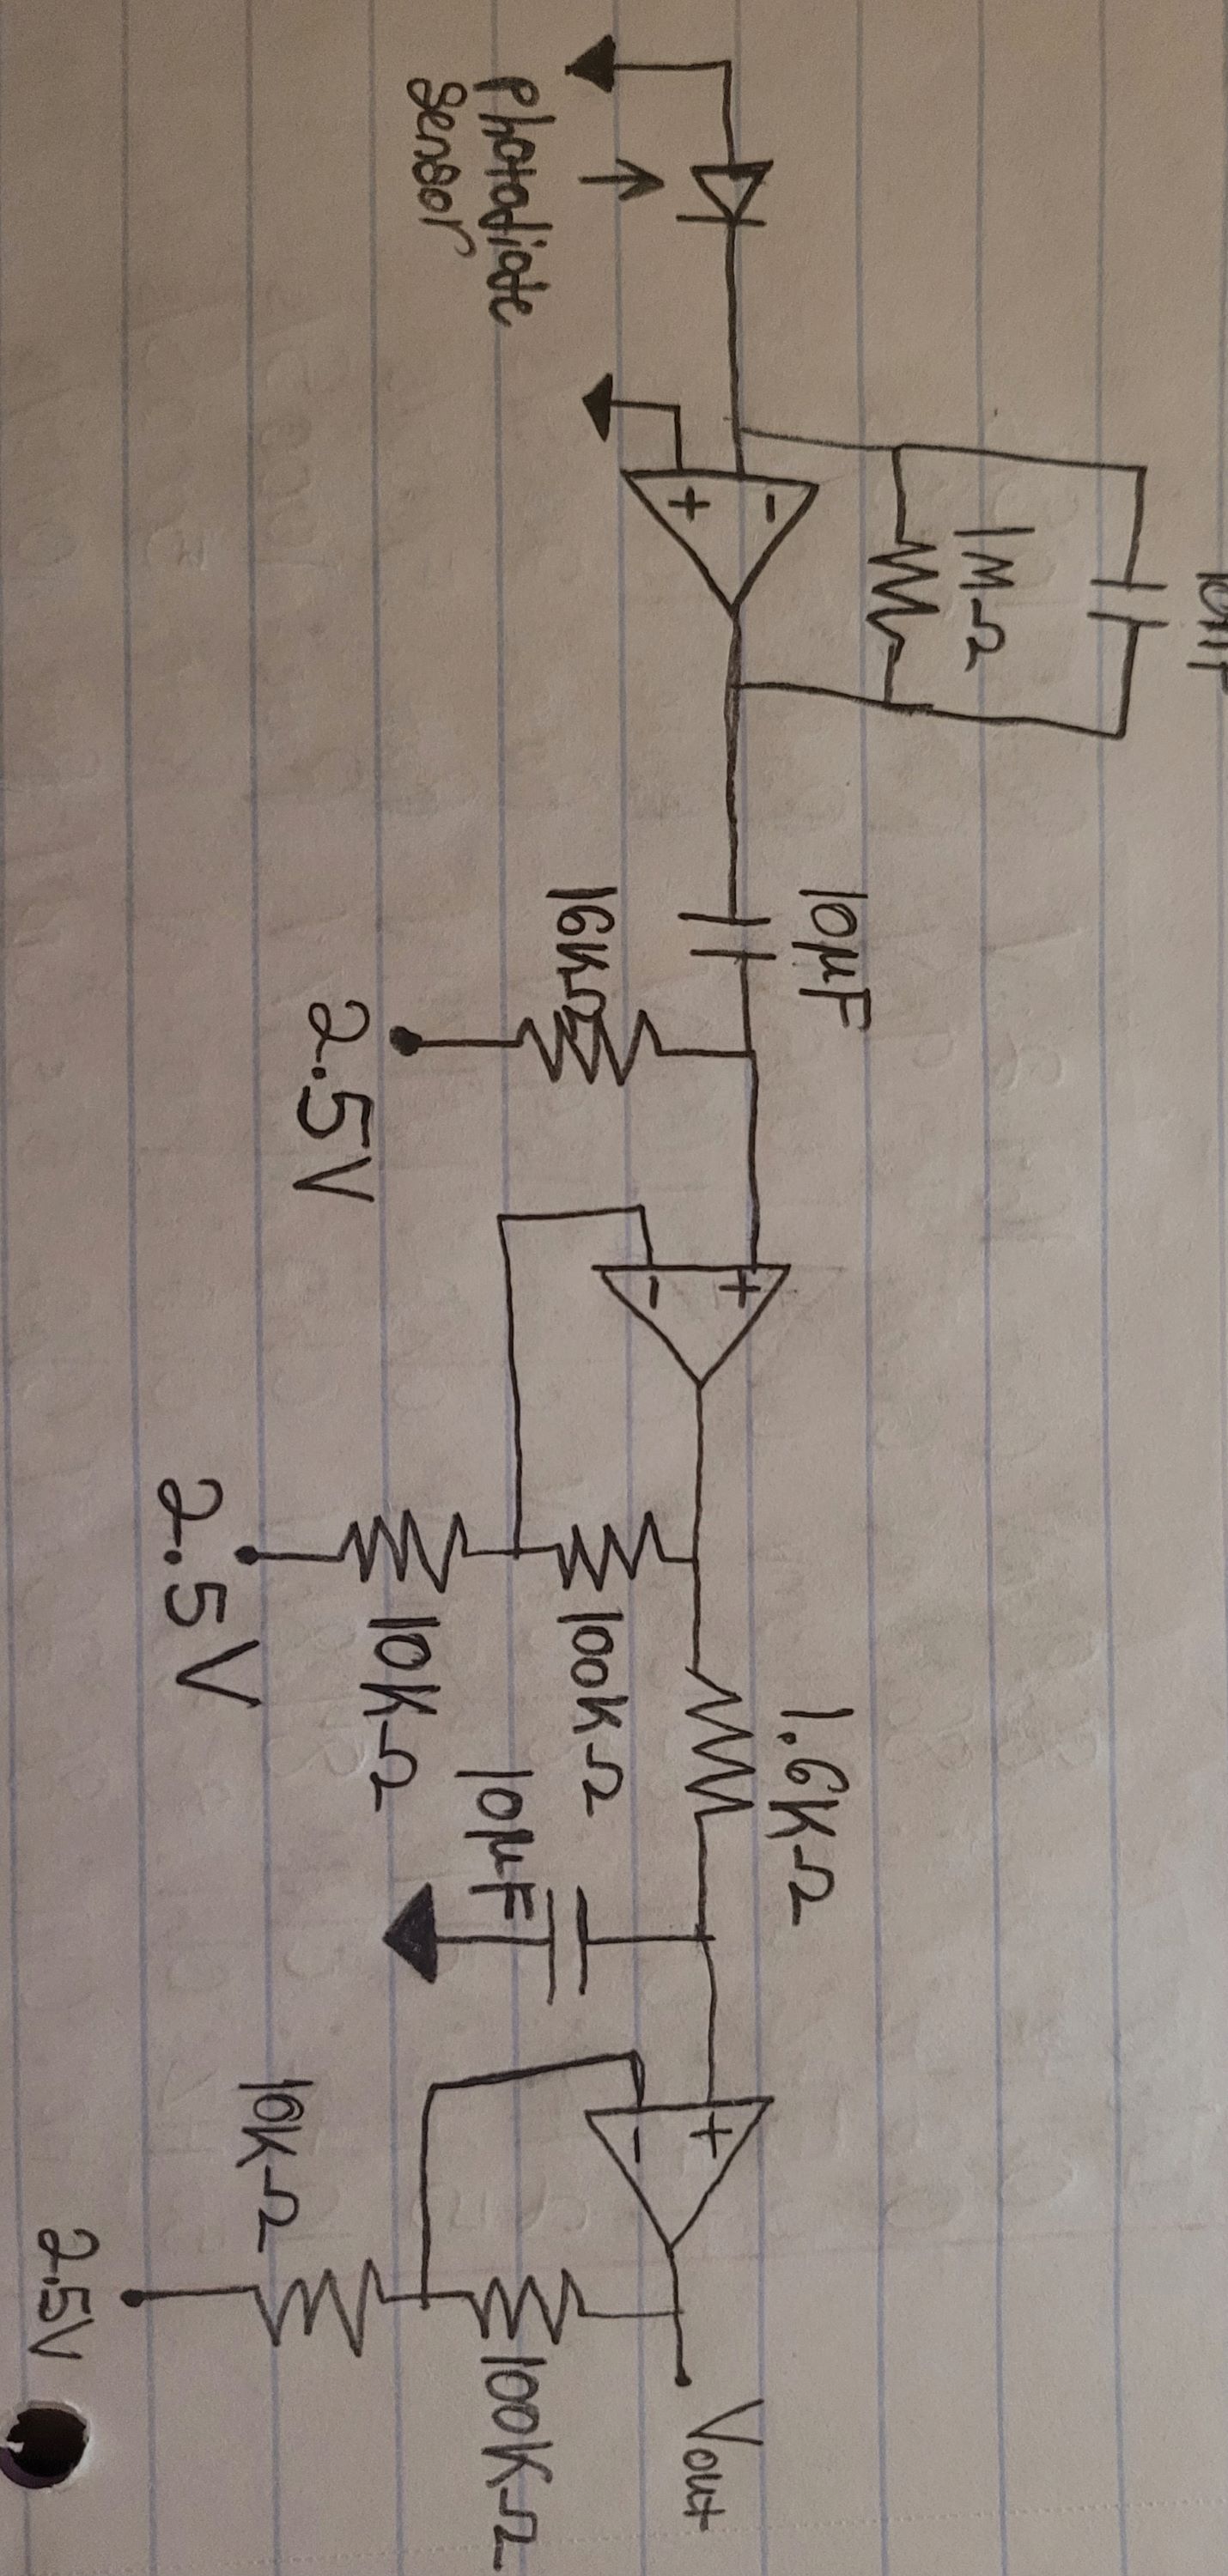 1MΩ
-
+
photodiode
sensor
10μF
16KΩ
2.5V
+
-
1.6KΩ
100KΩ
10KΩ
2.5V
10μF
+
-
Vout
100KΩ
10KΩ
2.5V